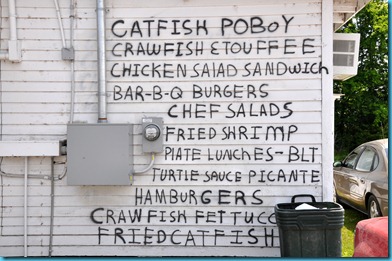 CATFISH POBOY
CRAWFISH ETOUFFEE
CHICKEN SALAD SANDWICH
BAR-B-Q BURGERS
CHEF SALADS
FRIED SHRIMP
PLATE LUNCHES-BLT
TURTLE SAUCE PICANTE
HAMBURGERS
CRAWFISH FETTUCC
FRIED CATFISH